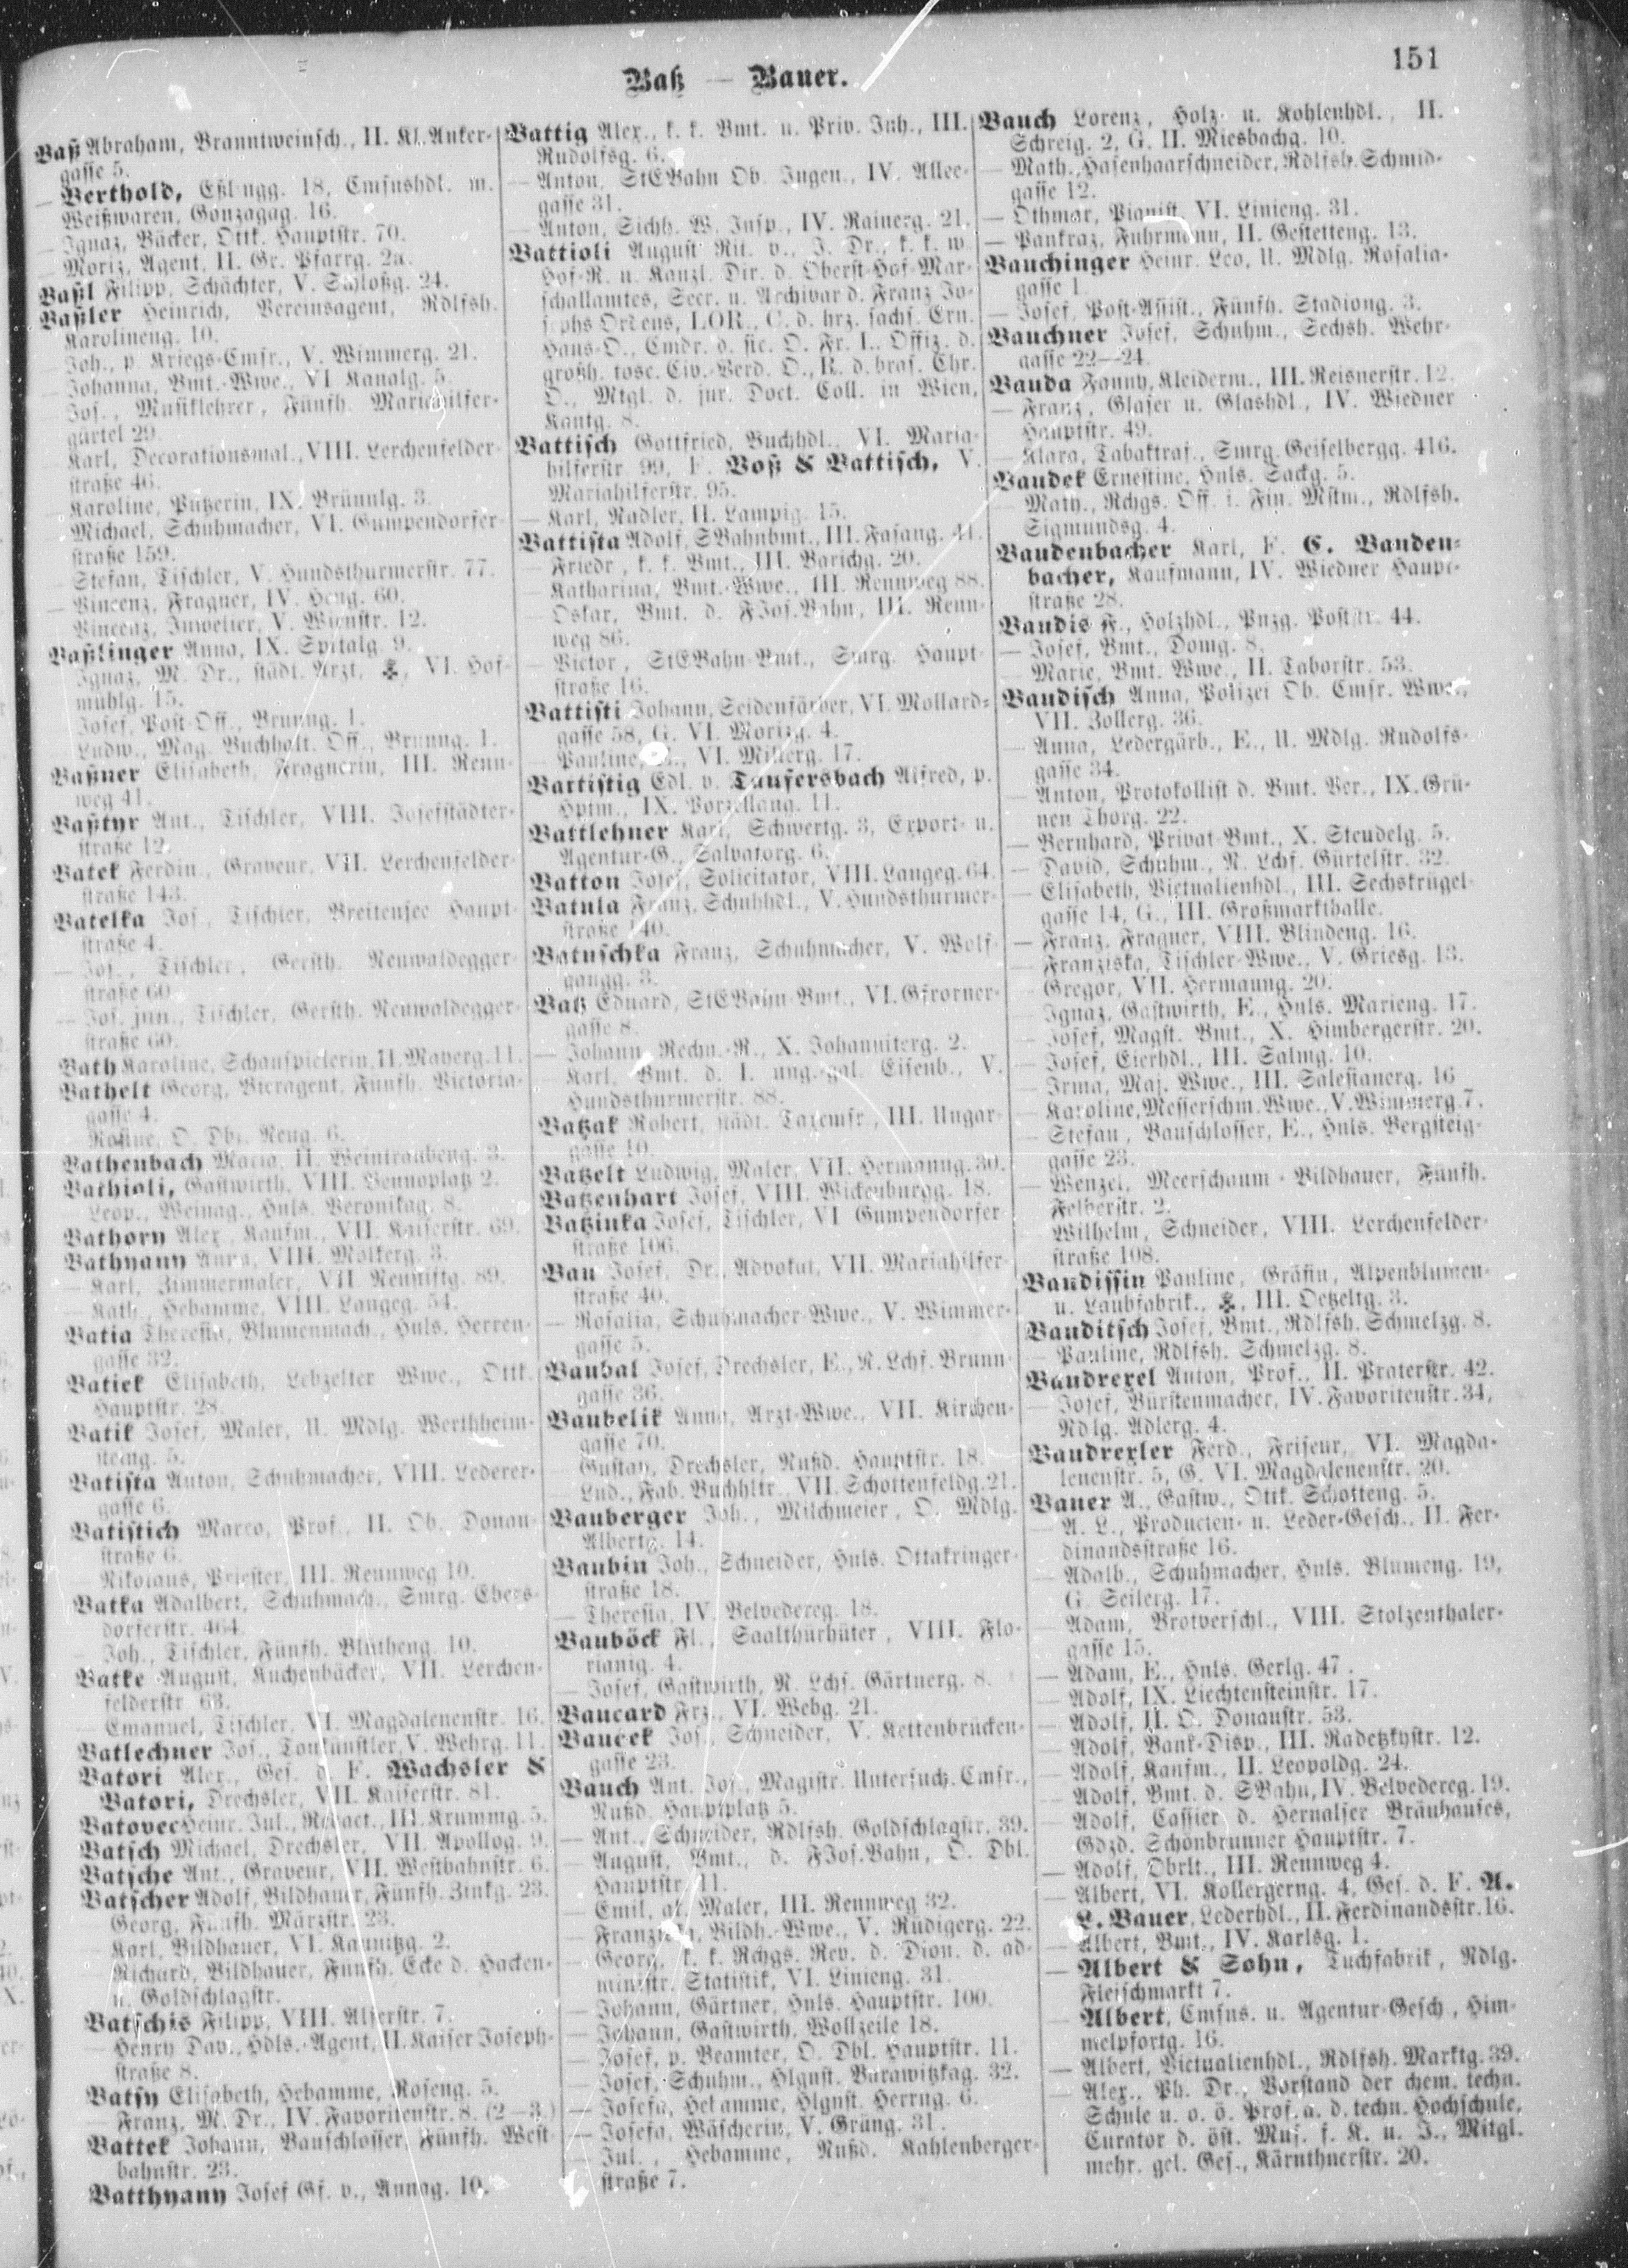 151
Baß — Bauer.
Baß Abraham, Branntweinsch., II. Kl. Anker-
gasse 5.
— Berthold, Eßlingg. 18, Cmsnshdl. m.
Weißwaren, Gonzagag. 16.
— Ignaz, Bäcker, Ottk. Hauptstr. 70.
— Moriz, Agent, II. Gr. Pfarrg. 2a.
Baßl Filipp, Schächter, V. Schloßg. 24.
Baßler Heinrich, Vereinsagent, Rdlfsh.
Karolineng. 10.
Joh., p. Kriegs-Cmsr., V. Wimmerg. 21.
Johanna, Bmt.-Wwe., VI. Kanalg. 5.
Jos., Musiklehrer, Fünfh. Mariahilfer-
gürtel 29.
Karl, Decorationsmal., VIII. Lerchenfelder-
straße 46.
Karoline, Putzerin, IX. Brünnlg. 3.
Michael, Schuhmacher, VI. Gumpendorfer-
straße 159.
Stefan, Tischler, V. Hundsthurmerstr. 77.
Vincenz, Fragner, IV. Heug. 60.
Vincenz, Juwelier, V. Wienstr. 12.
Baßlinger Anna, IX. Spitalg. 9.
Ignaz, M. Dr., städt. Arzt, VI. Hof-
mühlg. 15.
Josef, Post-Off., Brunng. 1.
Ludw., Mag. Buchhalt. Off., Brunng. 1.
Baßner Elisabeth, Fragnerin, III. Renn-
weg 41.
Baßtyr Ant., Tischler, VIII. Josefstädter-
straße 12.
Batek Ferdin., Graveur, VII. Lerchenfelder-
straße 143.
Batelka Jos., Tischler, Breitensee Haupt-
straße 4.
— Jos., Tischler, Gersth. Neuwaldegger-
straße 60.
— Jos. jun., Tischler, Gersth. Neuwaldegger-
straße 60.
Bath Karoline, Schauspielerin, II. Mayerg. 11.
Bathelt Georg, Bieragent, Fünfh. Victoria-
gasse 4.
Rosine, O. Dbl. Neug. 6.
Bathenbach Maria, II. Weintraubeng. 3.
Bathioli, Gastwirth, VIII. Bennoplatz 2.
Leop., Weinag., Hnls. Veronikag. 8.
Bathorn Alex., Kaufm., VII. Kaiserstr. 69.
Bathyany Anna, VIII. Mölkerg. 3.
— Karl, Zimmermaler, VII. Neustiftg. 89.
— Kath., Hebamme, VIII. Langeg. 54.
Batia Theresia, Blumenmach., Hnls. Herren-
gasse 32.
Batiek Elisabeth, Lebzelter Wwe., Ottk.
Hauptstr. 28.
Batik Josef, Maler, U. Mdlg. Werthheim-
steing. 5.
Batista Anton, Schuhmacher, VIII. Lederer-
gasse 6.
Batistich Marco, Prof., II. Ob. Donau-
straße 6.
Nikolaus, Priester, III. Rennweg 10.
Batka Adalbert, Schuhmach., Smrg. Ebers-
dorferstr. 464.
Joh., Tischler, Fünfh. Blütheng. 10.
Batke August, Kuchenbäcker, VII. Lerchen-
felderstr. 63.
— Emanuel, Tischler, VI. Magdalenenstr. 16.
Batlechner Jos., Tonkünstler, V. Wehrg. 11.
Batori Alex., Ges. d. F. Wachsler &
Batori, Drechsler, VII. Kaiserstr. 81.
Batovec Heinr. Jul., Redact., III. Krummg. 5.
Batsch Michael, Drechsler, VII. Apollog. 9.
Batsche Ant., Graveur, VII. Westbahnstr. 6.
Batscher Adolf, Bildhauer, Fünfh. Zinkg. 23.
Georg, Fünfh. Märzstr. 23.
Karl, Bildhauer, VI. Kaunitzg. 2.
Richard, Bildhauer, Fünfh. Ecke d. Hacken-
u. Goldschlagstr.
Batschis Filipp, VIII. Alserstr. 7.
Henry Dav., Hdls.-Agent, II. Kaiser Joseph-
straße 8.
Batsy Elisabeth, Hebamme, Roseng. 5.
Franz, M. Dr., IV. Favoritenstr. 8. (2—3.)
Battek Johann, Bauschlosser, Fünfh. West-
bahnstr. 23.
Batthyany Josef Gf. v., Annag. 10.
Battig Alex., k. k. Bmt. u. Priv. Inh., III.
Rudolfsg. 6.
— Anton, StEBahn Ob. Ingen., IV. Allee-
gasse 31.
— Anton, Sichh. W. Insp., IV. Rainerg. 21.
Battioli August Rit. v., J. Dr., k. k. w.
Hof-R. u. Kanzl. Dir. d. Oberst-Hof-Mar-
schallamtes, Secr. u. Archivar d. Franz Jo-
sephs Ordens, LOR., C. d. hrz. sachs. Ern.
Haus-O., Cmdr. d. sic. O. Fr. I., Offiz. d.
großh. tosc. Civ.-Verd. O., R. d. bras. Chr.
O., Mtgl. d. jur. Doct. Coll. in Wien,
Kantg. 8.
Battisch Gottfried, Buchhdl., VI. Maria-
hilferstr. 99, F. Voß & Battisch, V.
Mariahilferstr. 95.
— Karl, Radler, II. Lampig. 15.
Battista Adolf, SBahnbmt., III. Fasang. 41.
— Friedr., k. k. Bmt., III. Barichg. 20.
— Katharina, Bmt.-Wwe., III. Rennweg 88.
— Oskar, Bmt. d. FJos.Bahn, III. Renn-
weg 86.
— Victor, StEBahn-Bmt., Smrg. Haupt-
straße 16.
Battisti Johann, Seidenfärber, VI. Mollard-
gasse 58, G. VI. Morizg. 4.
— Pauline, VI. Millerg. 17.
Battistig Edl. v. Taufersbach Alfred, p.
Hptm., IX. Porzellang. 11.
Battlehner Karl, Schwertg. 3, Export- u.
Agentur-G., Salvatorg. 6.
Batton Josef, Solicitator, VIII. Langeg. 64.
Batula Franz, Schuhhdl., V. Hundsthurmer-
straße 140.
Batuschka Franz, Schuhmacher, V. Wolf-
gangg. 3.
Batz Eduard, StEBahn-Bmt., VI. Gfrorner-
gasse 8.
— Johann, Rechn.-R., X. Johanniterg. 2.
Karl, Bmt. d. I. ung.-gal. Eisenb., V.
Hundsthurmerstr. 88.
Batzak Robert, städt. Taxcmsr., III. Ungar-
gasse 10.
Batzelt Ludwig, Maler, VII. Hermanng. 30.
Batzenhart Josef, VIII. Wickenburgg. 18.
Batzinka Josef, Tischler, VI. Gumpendorfer-
straße 106.
Bau Josef, Dr., Advokat, VII. Mariahilfer-
straße 40.
— Rosalia, Schuhmacher-Wwe., V. Wimmer-
gasse 5.
Baubal Josef, Drechsler, E., N. Lchf. Brunn-
gasse 36.
Baubelik Anna, Arzt-Wwe., VII. Kirchen-
gasse 70.
Gustav, Drechsler, Nußd. Hauptstr. 18.
— Lud., Fab. Buchhltr., VII. Schottenfeldg. 21.
Bauberger Joh., Milchmeier, O. Mdlg.
Albertg. 14.
Baubin Joh., Schneider, Hnls. Ottakringer-
straße 18.
— Theresia, IV. Belvedereg. 18.
Bauböck Fl., Saalthürhüter, VIII. Flo-
rianig. 4.
— Josef, Gastwirth, N. Lchf. Gärtnerg. 8.
Baucard Frz., VI. Webg. 21.
Baucek Jos., Schneider, V. Kettenbrücken-
gasse 23.
Bauch Ant. Jos., Magistr. Untersuch. Cmsr.,
Nußd. Hauptplatz 5.
— Ant., Schneider, Rdlfsh. Goldschlagstr. 39.
— August, Bmt., d. FJos.Bahn, O. Dbl.
Hauptstr. 11.
— Emil, ak. Maler, III. Rennweg 32.
— Franziska, Bildh.-Wwe., V. Rüdigerg. 22.
— Georg, k. k. Rchgs. Rev. d. Dion. d. ad-
ministr. Statistik, VI. Linieng. 31.
— Johann, Gärtner, Hnls. Hauptstr. 100.
— Johann, Gastwirth, Wollzeile 18.
— Josef, p. Beamter, O. Dbl. Hauptstr. 11.
— Josef, Schuhm., Hlgnst. Barawitzkag. 32.
— Josefa, Hebamme, Hlgnst. Herrng. 6.
— Josefa, Wäscherin, V. Grüng. 31.
Jul., Hebamme, Nußd. Kahlenberger-
straße 7.
Bauch Lorenz, Holz- u. Kohlenhdl., II.
Schreig. 2, G. II. Miesbachg. 10.
— Math., Hasenhaarschneider, Rdlfsh. Schmid-
gasse 12.
— Othmar, Pianist, VI. Linieng. 31.
— Pankraz, Fuhrmann, II. Gestetteng. 13.
Bauchinger Heinr. Leo, U. Mdlg. Rosalia-
gasse 1.
— Josef, Post-Assist., Fünfh. Stadiong. 3.
Bauchner Josef, Schuhm., Sechsh. Wehr-
gasse 22—24.
Bauda Fanny, Kleiderm., III. Reisnerstr. 12.
— Franz, Glaser u. Glashdl., IV. Wiedner
Hauptstr. 49.
— Klara, Tabaktraf., Smrg. Geiselbergg. 416.
Baudek Ernestine, Hnls. Sackg. 5.
— Math., Rchgs. Off. i. Fin. Mstm., Rdlfsh.
Sigmundsg. 4.
Baudenbacher Karl, F. C. Bauden-
bacher, Kaufmann, IV. Wiedner Haupt-
straße 28.
Baudis F., Holzhdl., Pnzg. Poststr. 44.
— Josef, Bmt., Domg. 8.
— Marie, Bmt. Wwe., II. Taborstr. 53.
Baudisch Anna, Polizei Ob. Cmsr. Wwe.,
VII. Zollerg. 36.
— Anna, Ledergärb., E., U. Mdlg. Rudolfs-
gasse 34.
— Anton, Protokollist d. Bmt. Ver., IX. Grü-
nen Thorg. 22.
— Bernhard, Privat-Bmt., X. Steudelg. 5.
— David, Schuhm., N. Lchf. Gürtelstr. 32.
— Elisabeth, Victualienhdl., III. Sechskrügel-
gasse 14, G., III. Großmarkthalle.
— Franz, Fragner, VIII. Blindeng. 16.
— Franziska, Tischler-Wwe., V. Griesg. 13.
Gregor, VII. Hermanng. 20.
— Ignaz, Gastwirth, E., Hnls. Marieng. 17.
— Josef, Magst. Bmt., X. Himbergerstr. 20.
— Josef, Eierhdl., III. Salmg. 10.
— Irma, Maj. Wwe., III. Salesianerg. 16
— Karoline, Messerschm. Wwe., V. Wimmerg. 7.
— Stefan, Bauschlosser, E., Hnls. Bergsteig-
gasse 23.
— Wenzel, Meerschaum-Bildhauer, Fünfh.
Felberstr. 2.
Wilhelm, Schneider, VIII. Lerchenfelder-
straße 108.
Baudissin Pauline, Gräfin, Alpenblumen-
u. Laubfabrik., III. Oetzeltg. 3.
Bauditsch Josef, Bmt., Rdlfsh. Schmelzg. 8.
— Pauline, Rdlfsh. Schmelzg. 8.
Baudrexel Anton, Prof., II. Praterstr. 42.
— Josef, Bürstenmacher, IV. Favoritenstr. 34,
Ndlg. Adlerg. 4.
Baudrexler Ferd., Friseur, VI. Magda-
lenenstr. 5, G. VI. Magdalenenstr. 20.
Bauer A., Gastw., Ottk. Schotteng. 5.
— A. L., Producten- u. Leder-Gesch., II. Fer-
dinandsstraße 16.
— Adalb., Schuhmacher, Hnls. Blumeng. 19,
G. Seilerg. 17.
— Adam, Brotverschl., VIII. Stolzenthaler-
gasse 15.
— Adam, E., Hnls. Gerlg. 47.
— Adolf, IX. Liechtensteinstr. 17.
— Adolf, II. O. Donaustr. 53.
— Adolf, Bank-Disp., III. Radetzkystr. 12.
— Adolf, Kaufm., II. Leopoldg. 24.
— Adolf, Bmt. d. SBahn, IV. Belvedereg. 19.
— Adolf, Cassier d. Hernalser Bräuhauses,
Gdzd. Schönbrunner Hauptstr. 7.
— Adolf, Obrlt., III. Rennweg 4.
— Albert, VI. Kollergerng. 4, Ges. d. F. A.
L. Bauer, Lederhdl., II. Ferdinandsstr. 16.
— Albert, Bmt., IV. Karlsg. 1.
— Albert & Sohn, Tuchfabrik, Ndlg.
Fleischmarkt 7.
— Albert, Cmsns. u. Agentur-Gesch., Him-
melpfortg. 16.
— Albert, Victualienhdl., Rdlfsh. Marktg. 39.
— Alex., Ph. Dr., Vorstand der chem. techn.
Schule u. o. ö. Prof. a. d. techn. Hochschule,
Curator d. öst. Mus. f. K. u. J., Mitgl.
mehr. gel. Ges., Kärnthnerstr. 20.